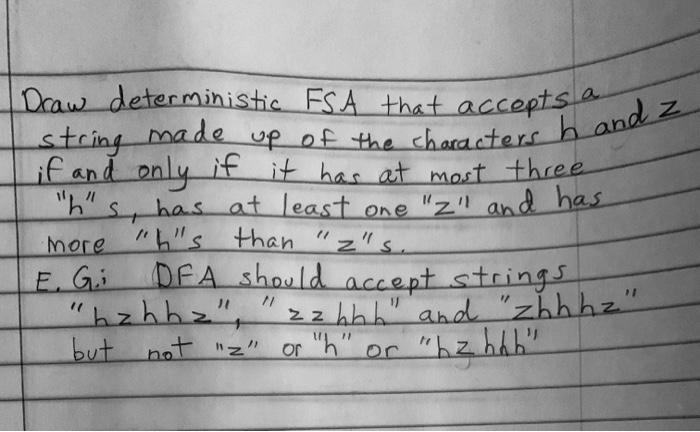 Draw deterministic FSA that accepts a
string made up of the characters h and z
if and only if it has at most three
"h" s, has at least one "z" and has
more "h"s than "z"s.
E. G.: DFA should accept strings
"hzhhz", "zzhhh" and "zhhhz"
but not "z" or "h" or "hzhhh"